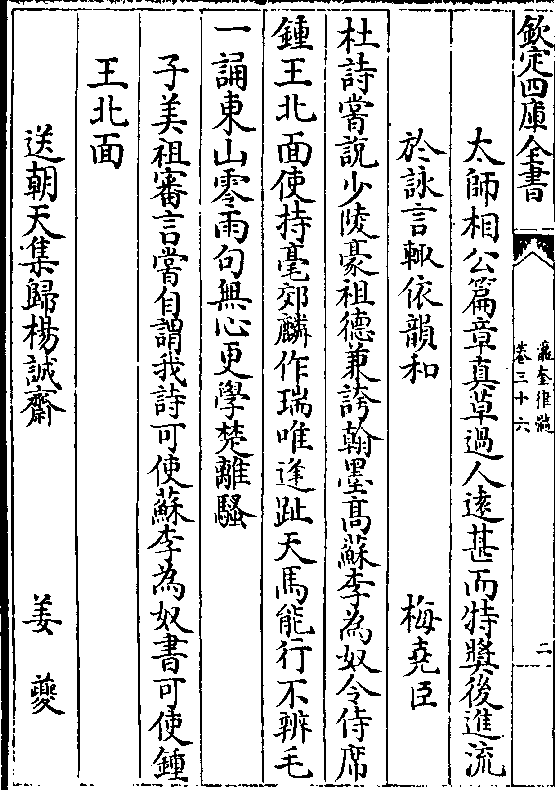 欽定四庫全書
瀛奎律髓
卷三十六
二
太師相公篇章真草過人遠甚而特奬後進流
於詠言輙依韻和
梅堯臣
杜詩嘗說少陵豪祖德兼誇翰墨髙蘇李為奴令侍席
鍾王北面使持毫郊麟作瑞唯逢趾天馬能行不辨毛
一誦東山零雨句無心更學楚離騷
子美祖審言嘗自謂我詩可使蘇李為奴書可使鍾
王北面
送朝天集歸楊誠齋
姜夔